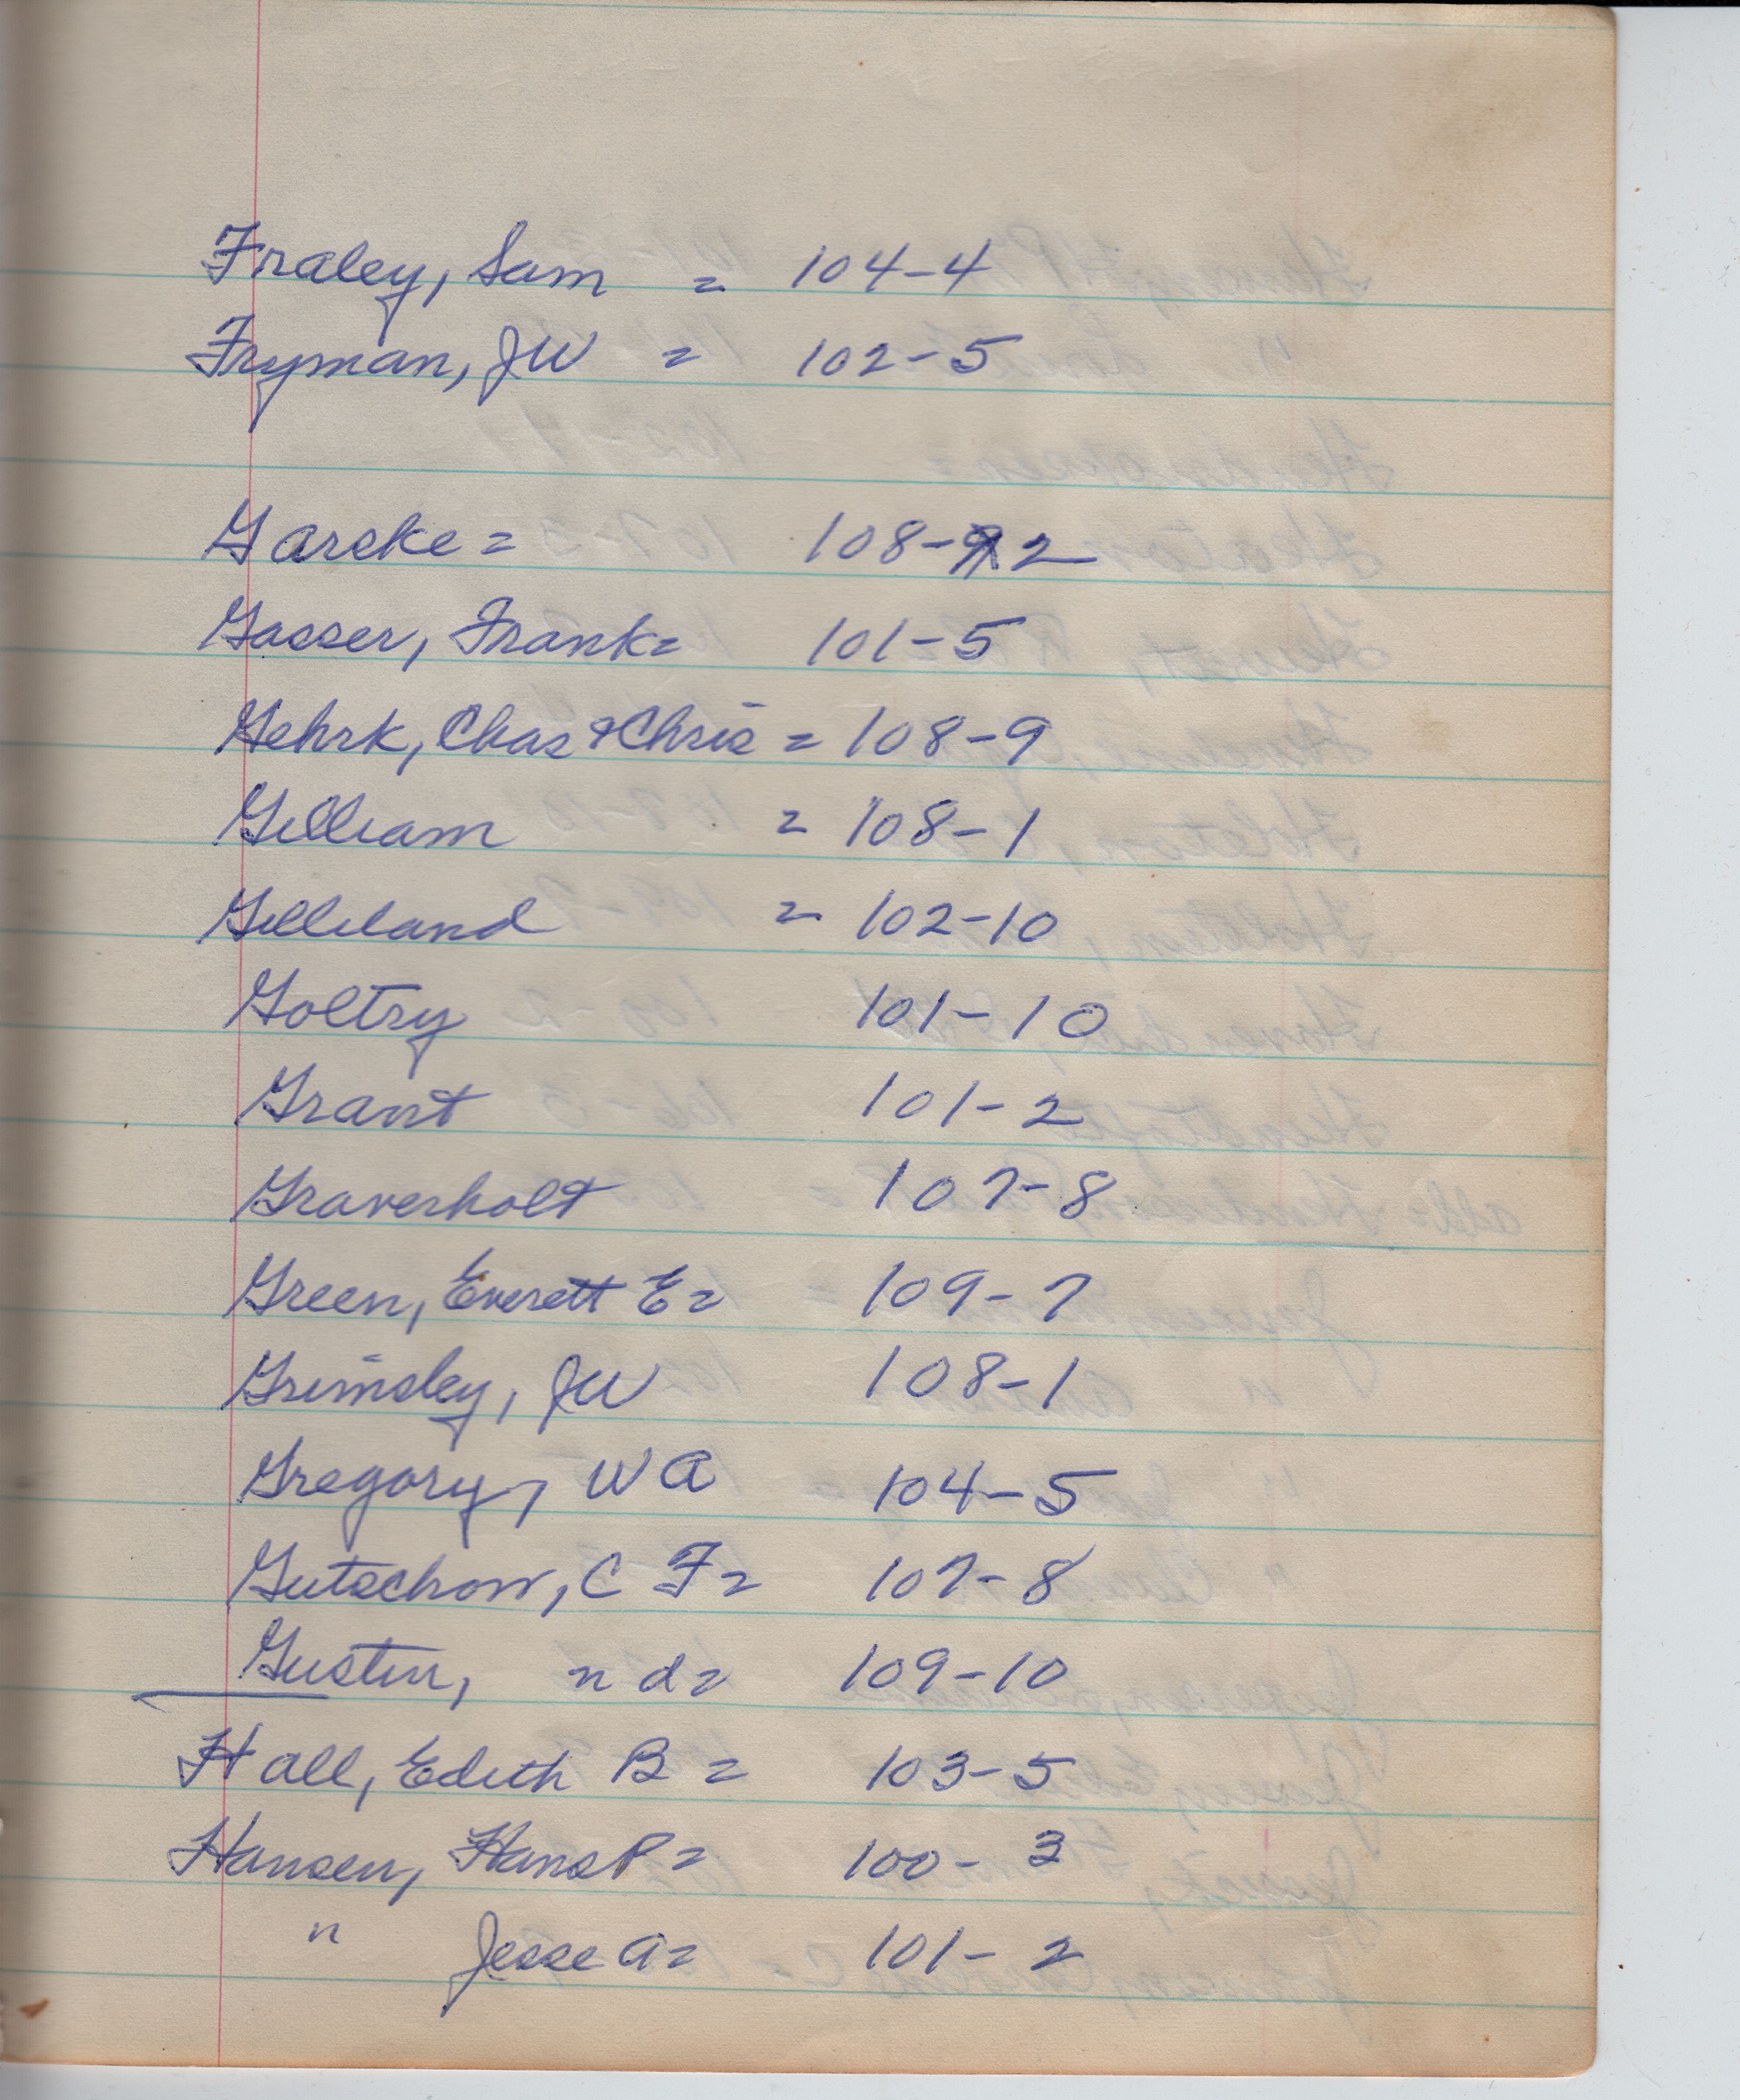 Fraley, Sam = 104-4
Fryman, JW = 102-5
Garske = 108-9 2
Gasser, Frank = 101-5
Gehrk, Chas & Chris = 108-9
Gilliam = 108-1
Gilliland = 102-10
Goltry 101-10
Grant 101-2
Graverholt 107-8
Green, Everett E = 109-7
Grimsley, JW 108-1
Gregory, WA 104-5
Gutschow, C F = 107-8
Gustin, n d = 109-10
Hall, Edith B = 103-5
Hansen, Hans P = 100-3
" Jesse A = 101-2